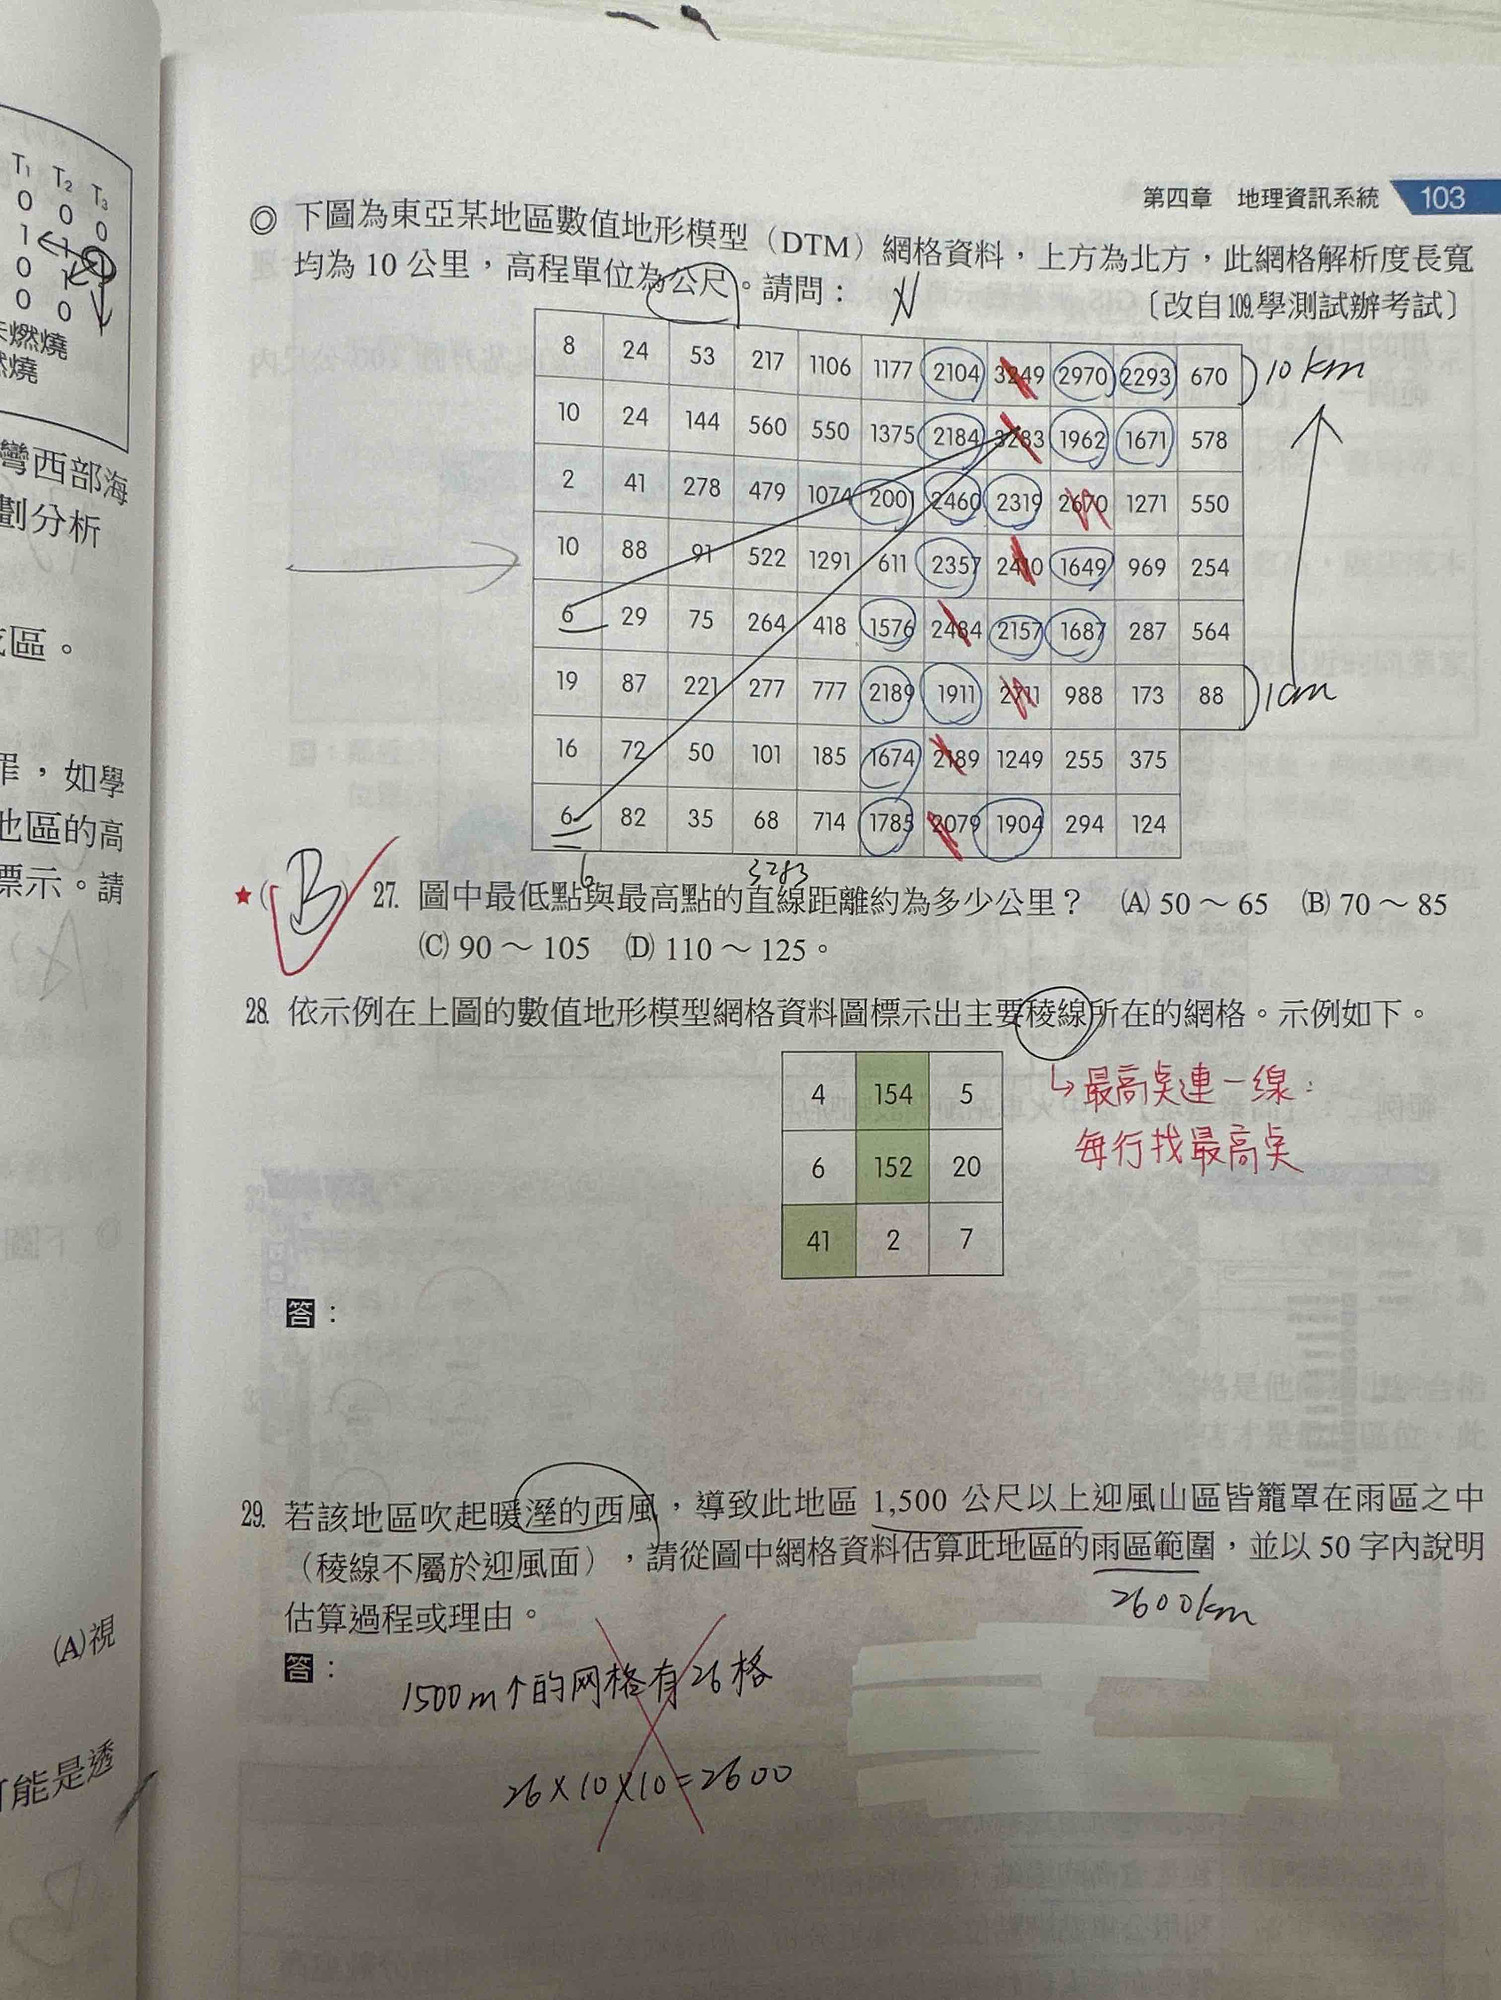 T₁ T₂ T₃
0 0 0
1 1 1
0 1
0 0
燃燒
燃燒
彎西部海
劃分析
區。
罪，如學
地區的高
標示。請
(A)視
可能是透
第四章 地理資訊系統 103
◎ 下圖為東亞某地區數值地形模型（DTM）網格資料，上方為北方，此網格解析度長寬
均為 10 公里，高程單位為公尺。請問： N 〔改自109.學測試辦考試〕
8 24 53 217 1106 1177 2104 3249 2970 2293 670 10 km
10 24 144 560 550 1375 2184 3283 1962 1671 578
2 41 278 479 1074 2001 2460 2319 2670 1271 550
10 88 91 522 1291 611 2357 2410 1649 969 254
6 29 75 264 418 1576 2484 2157 1687 287 564
19 87 221 277 777 2189 1911 2711 988 173 88 1cm
16 72 50 101 185 1674 2189 1249 255 375
6 82 35 68 714 1785 2079 1904 294 124
6 3283
★( B ) 27. 圖中最低點與最高點的直線距離約為多少公里？ (A) 50～65 (B) 70～85
(C) 90～105 (D) 110～125。
28. 依示例在上圖的數值地形模型網格資料圖標示出主要稜線所在的網格。示例如下。
4 154 5
6 152 20
41 2 7
↳最高点連一線：
每行找最高点
答：
29. 若該地區吹起暖溼的西風，導致此地區 1,500 公尺以上迎風山區皆籠罩在雨區之中
（稜線不屬於迎風面），請從圖中網格資料估算此地區的雨區範圍，並以 50 字內說明
2600km
估算過程或理由。
答：
1500m↑的网格有26格
26×10×10=2600